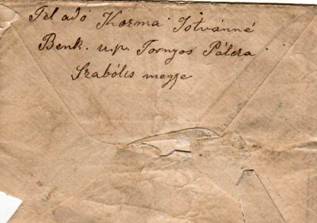 Fel adó Kozma Istvánné
Benk. u.p. Tornyos Pálcza
Szabólcs megye